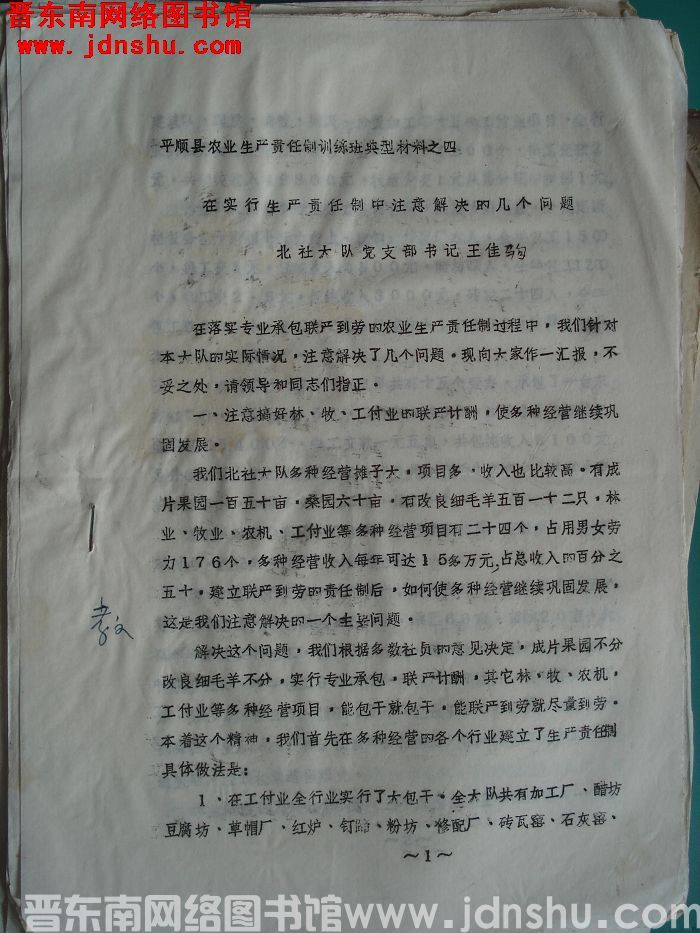 晋东南网络图书馆
www.jdnshu.com
平顺县农业生产责任制训练班典型材料之四
在实行生产责任制中注意解决的几个问题
北社大队党支部书记王佳驹
在落实专业承包联产到劳的农业生产责任制过程中，我们针对
本大队的实际情况，注意解决了几个问题。现向大家作一汇报，不
妥之处，请领导和同志们指正。
一、注意搞好林、牧、工付业的联产计酬，使多种经营继续巩
固发展。
我们北社大队多种经营摊子大，项目多，收入也比较高。有成
片果园一百五十亩，桑园六十亩，有改良细毛羊五百一十二只，林
业、牧业、农机、工付业等多种经营项目有二十四个，占用男女劳
力176个，多种经营收入每年可达15多万元，占总收入的百分之
五十。建立联产到劳的责任制后，如何使多种经营继续巩固发展，
这是我们注意解决的一个主要问题。
解决这个问题，我们根据多数社员的意见决定，成片果园不分
改良细毛羊不分，实行专业承包，联产计酬，其它林、牧、农机，
工付业等多种经营项目，能包干就包干，能联产到劳就尽量到劳。
本着这个精神，我们首先在多种经营的各个行业建立了生产责任制
具体做法是：
1、在工付业全行业实行了大包干。全大队共有加工厂、醋坊
豆腐坊、草帽厂、红炉、钉蹄、粉坊、修配厂、砖瓦窑、石灰窑、
～1～
晋东南网络图书馆 www.jdnshu.com